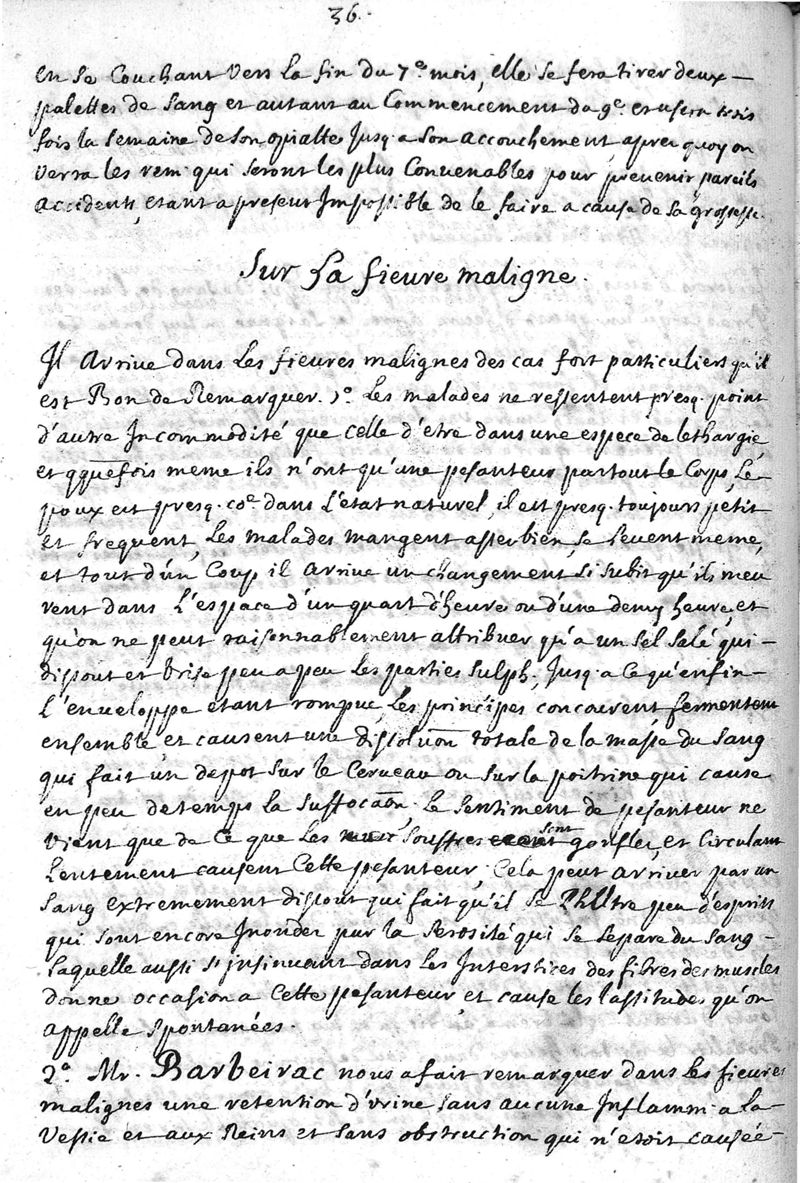 36.
en se Couchant vers la fin du 7e. mois, elle se fera tirer deux
palettes de sang et autant au Commencement du 9e. et usera trois
fois la semaine de son opiatte Jusq. a son accouchement, apres quoy on
verra les rem. qui seront les plus Convenables pour prevenir pareils
accidents, etant a present Impossible de le faire a cause de sa grossesse.
Sur La fievre maligne.
Il Arrive dans les fievres malignes des cas fort particuliers qu'il
est Bon de Remarquer. 1o. Les malades ne ressentent presq. point
d'autre Incommodité que celle d'etre dans une espece de lethargie,
et qquefois meme ils n'ont qu'une pesanteur par tout le Corps, Le
poux est presq. coe. dans L'etat naturel, il est presq. toujours petit
et frequent, Les malades mangent asses bien, se levent meme,
et tout d'un Coup il arrive un changement si subit qu'ils meu
rent dans L'espace d'un quart d'heure ou d'une demy heure, et
qu'on ne peut raisonnablement attribuer qu'a un sel salé qui
dissout et brise peu a peu les parties sulph., Jusq. a ce qu'enfin
L'enveloppe etant rompue, Les principes concourent fermentent
ensemble et causent une dissoluon totale de la masse du sang
qui fait un depot sur le Cerveau ou sur la poitrine qui cause
en peu de temps la suffocaon. Le sentiment de pesanteur ne
vient que de ce que les souffres sont gonflés, et Circulant
Lentement causent Cette pesanteur. Cela peut arriver par un
sang extremement dissout qui fait qu'il se Philtre peu d'esprits
qui sont encore Inondes par la serosité qui se separe du sang
Laquelle aussi s'insinuant dans les Interstices des fibres des muscles
donne occasion a Cette pesanteur, et cause les lassitudes qu'on
appelle spontanées.
2o. Mr. Barbeirac nous a fait remarquer dans les fievres
malignes une retention d'urine sans aucune Inflamm. a la
Vessie et aux Reins et sans obstruction qui n'etoit causée